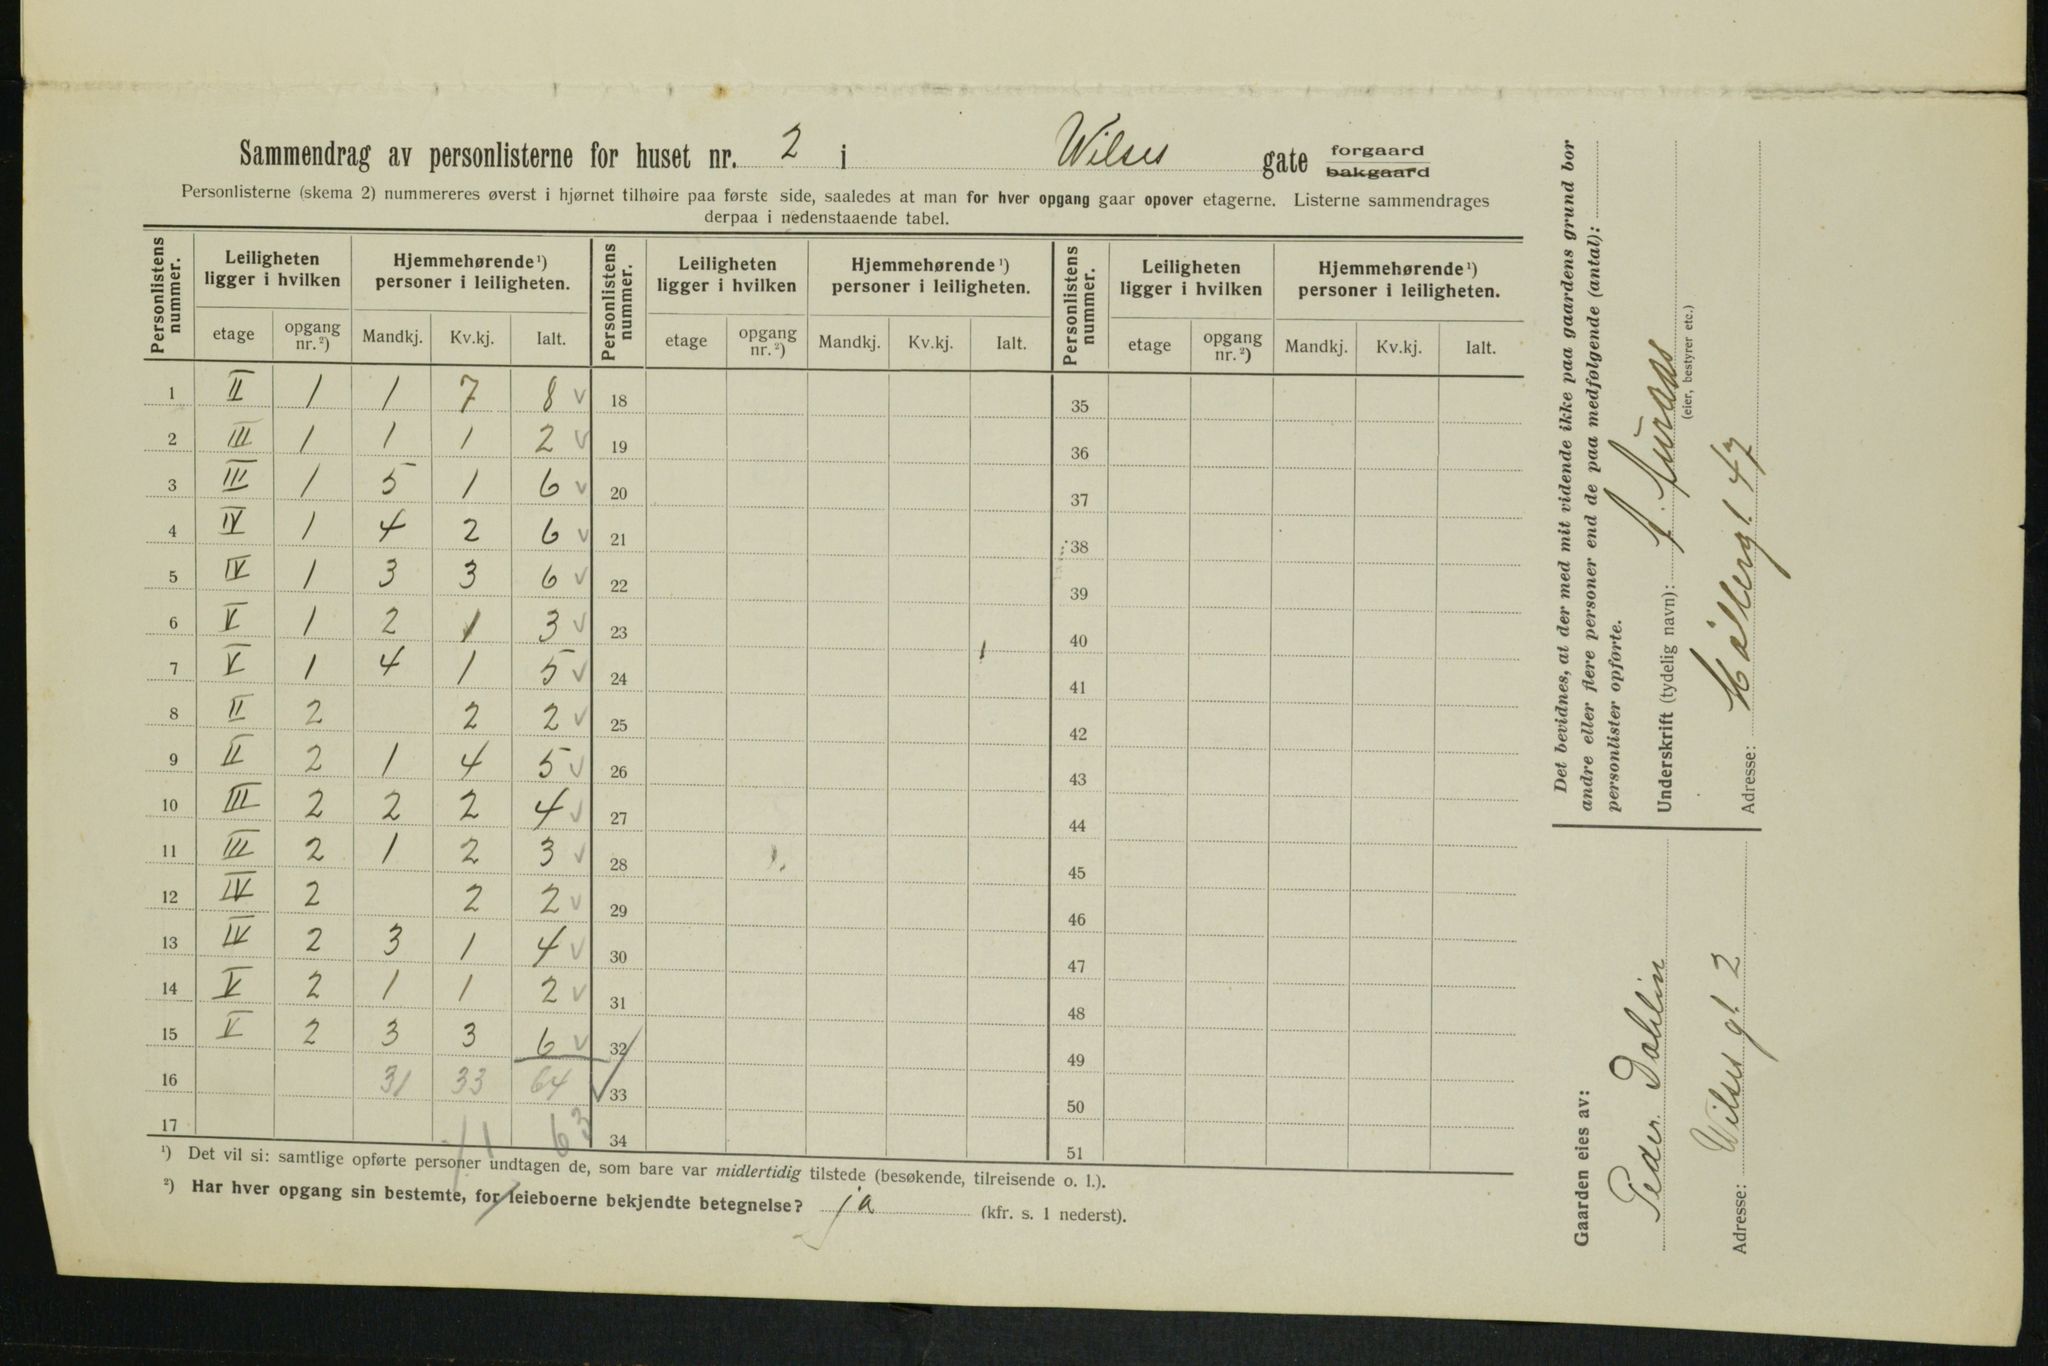 Sammendrag av personlisterne for huset nr. 2 i Wilses gate forgaard ~~bakgaard~~
Personlisterne (skema 2) nummereres øverst i hjørnet tilhøire paa første side, saaledes at man for hver opgang gaar opover etagerne. Listerne sammendrages
derpaa i nedenstaaende tabel.
Personlistens nummer. Leiligheten ligger i hvilken Hjemmehørende ¹) personer i leiligheten. Personlistens nummer. Leiligheten ligger i hvilken Hjemmehørende ¹) personer i leiligheten. Personlistens nummer. Leiligheten ligger i hvilken Hjemmehørende ¹) personer i leiligheten.
etage opgang nr. ²) Mandkj. Kv.kj. Ialt. etage opgang nr. ²) Mandkj. Kv.kj. Ialt. etage opgang nr. ²) Mandkj. Kv.kj. Ialt.
1 II 1 1 7 8 ✓ 18 35
2 III 1 1 1 2 ✓ 19 36
3 III 1 5 1 6 ✓ 20 37
4 IV 1 4 2 6 ✓ 21 38
5 IV 1 3 3 6 ✓ 22 39
6 V 1 2 1 3 ✓ 23 40
7 V 1 4 1 5 ✓ 24 41
8 II 2 2 2 ✓ 25 42
9 II 2 1 4 5 ✓ 26 43
10 III 2 2 2 4 ✓ 27 44
11 III 2 1 2 3 ✓ 28 45
12 IV 2 2 2 ✓ 29 46
13 IV 2 3 1 4 ✓ 30 47
14 V 2 1 1 2 ✓ 31 48
15 V 2 3 3 6 ✓ 32 49
16 31 33 64 ✓ 33 50
17 63 34 51
¹) Det vil si: samtlige opførte personer undtagen de, som bare var midlertidig tilstede (besøkende, tilreisende o. l.).
²) Har hver opgang sin bestemte, for leieboerne bekjendte betegnelse? ja (kfr. s. 1 nederst).
Det bevidnes, at der med mit vidende ikke paa gaardens grund bor
andre eller flere personer end de paa medfølgende (antal):
personlister opførte.
Underskrift (tydelig navn):
(eier, bestyrer etc.)
Adresse: 47
Gaarden eies av:
Peder Dahlin
Adresse: Wilses gt. 2